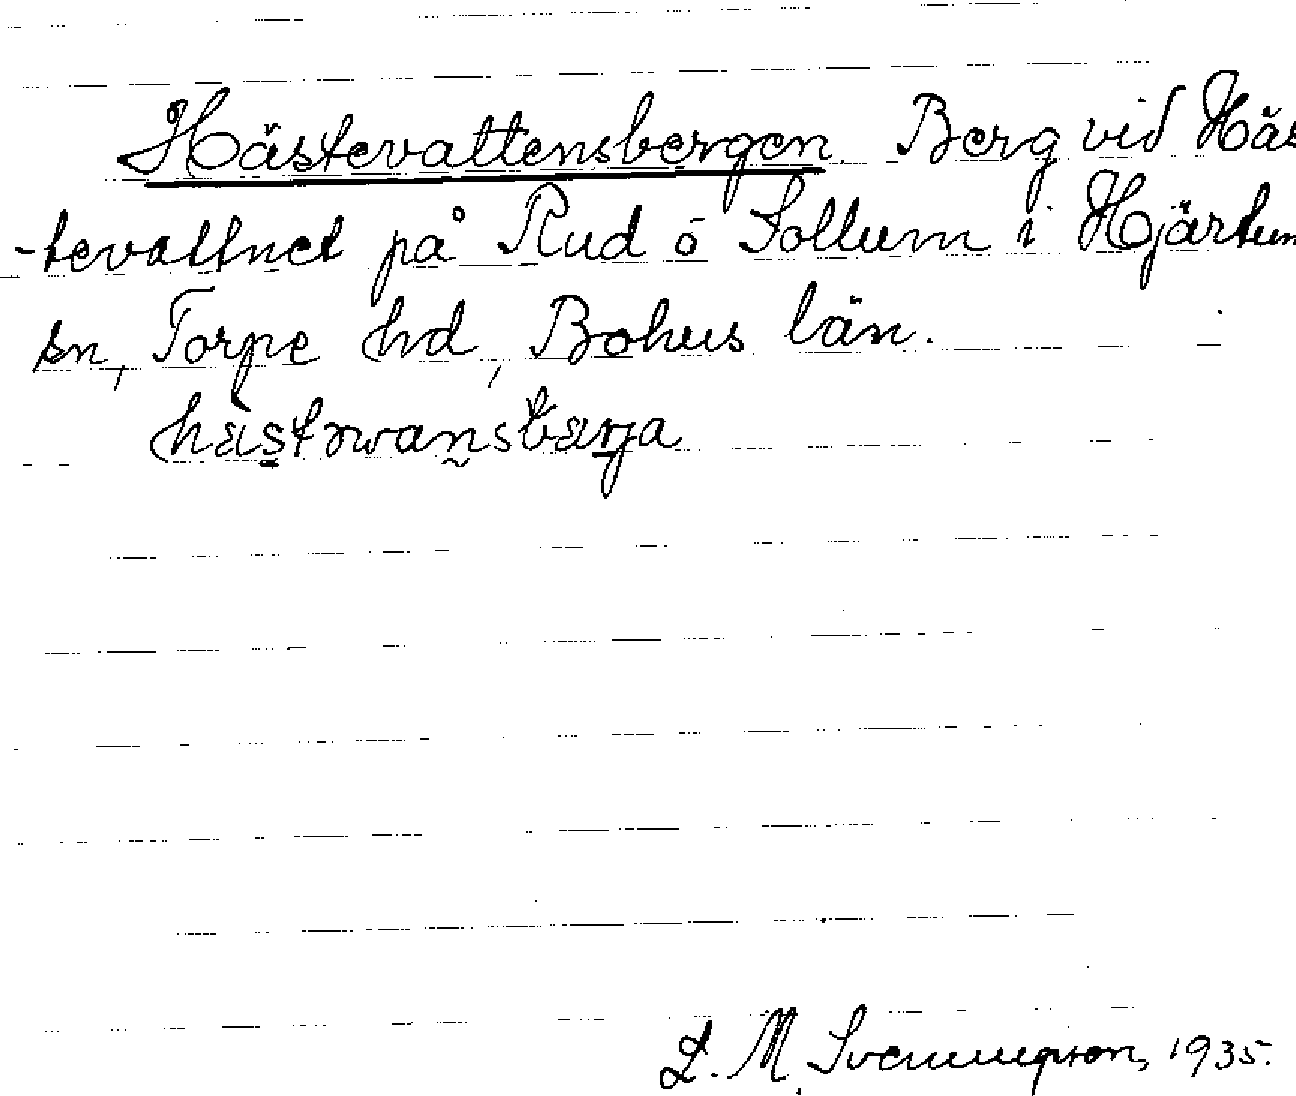 Hästevattensbergen. Berg vid Häs
-tevattnet på Rud o Sollum i Hjärtum
sn, Torpe hd, Bohus län.
hästəvansbærja
L. M. Svenungsson, 1935.